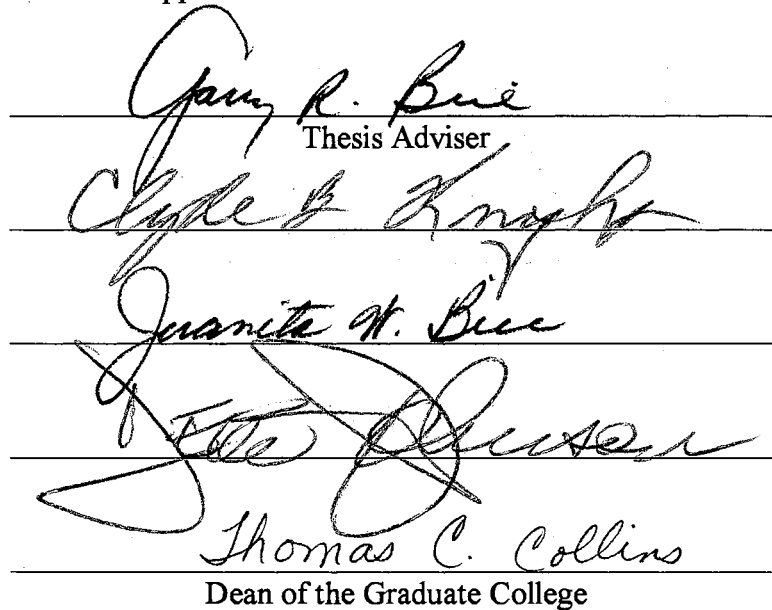 Garry R. Bice
Thesis Adviser
Clyde B. Knight
Juanita W. Bice
Thomas C. Collins
Dean of the Graduate College